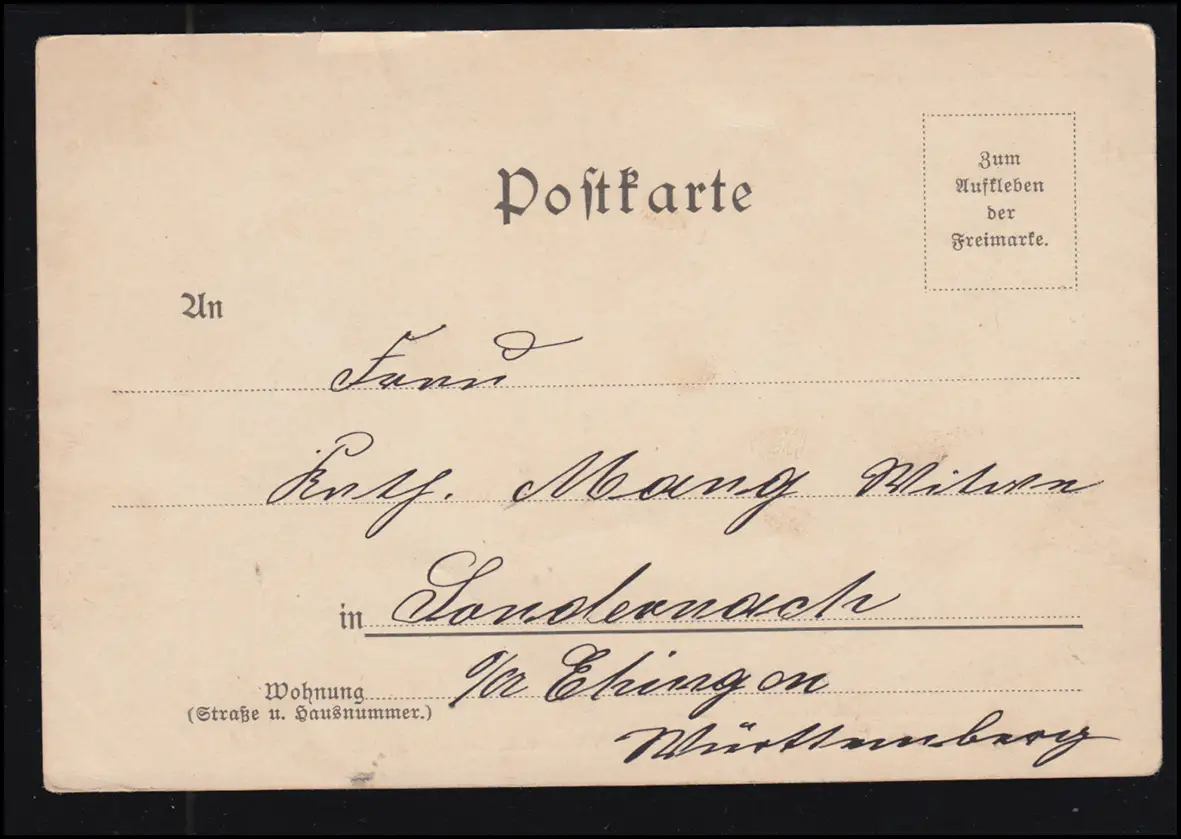 Postkarte
Zum
Aufkleben
der
Freimarke.
An
Frau
Kath. Mang Witwe
in Sondernach
O/A Ehingen
Wohnung
(Straße u. Hausnummer.)
Württemberg